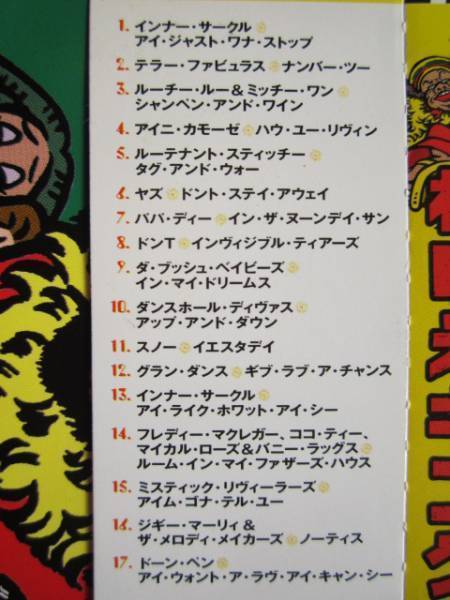 1. インナー・サークル
アイ・ジャスト・ワナ・ストップ
2. テラー・ファビュラス ナンバー・ツー
3. ルーチー・ルー＆ミッチー・ワン
シャンペン・アンド・ワイン
4. アイニ・カモーゼ ハウ・ユー・リヴィン
5. ルーテナント・スティッチー
タグ・アンド・ウォー
6. ヤズ ドント・ステイ・アウェイ
7. パパ・ディー イン・ザ・ヌーンデイ・サン
8. ドンT インヴィジブル・ティアーズ
9. ダ・ブッシュ・ベイビーズ
イン・マイ・ドリームス
10. ダンスホール・ディヴァス
アップ・アンド・ダウン
11. スノー イエスタデイ
12. グラン・ダンス ギブ・ラブ・ア・チャンス
13. インナー・サークル
アイ・ライク・ホワット・アイ・シー
14. フレディー・マクレガー、ココ・ティー、
マイカル・ローズ＆バニー・ラッグス
ルーム・イン・マイ・ファザーズ・ハウス
15. ミスティック・リヴィーラーズ
アイム・ゴナ・テル・ユー
16. ジギー・マーリィ＆
ザ・メロディ・メイカーズ ノーティス
17. ドーン・ペン
アイ・ウォント・ア・ラヴ・アイ・キャン・シー